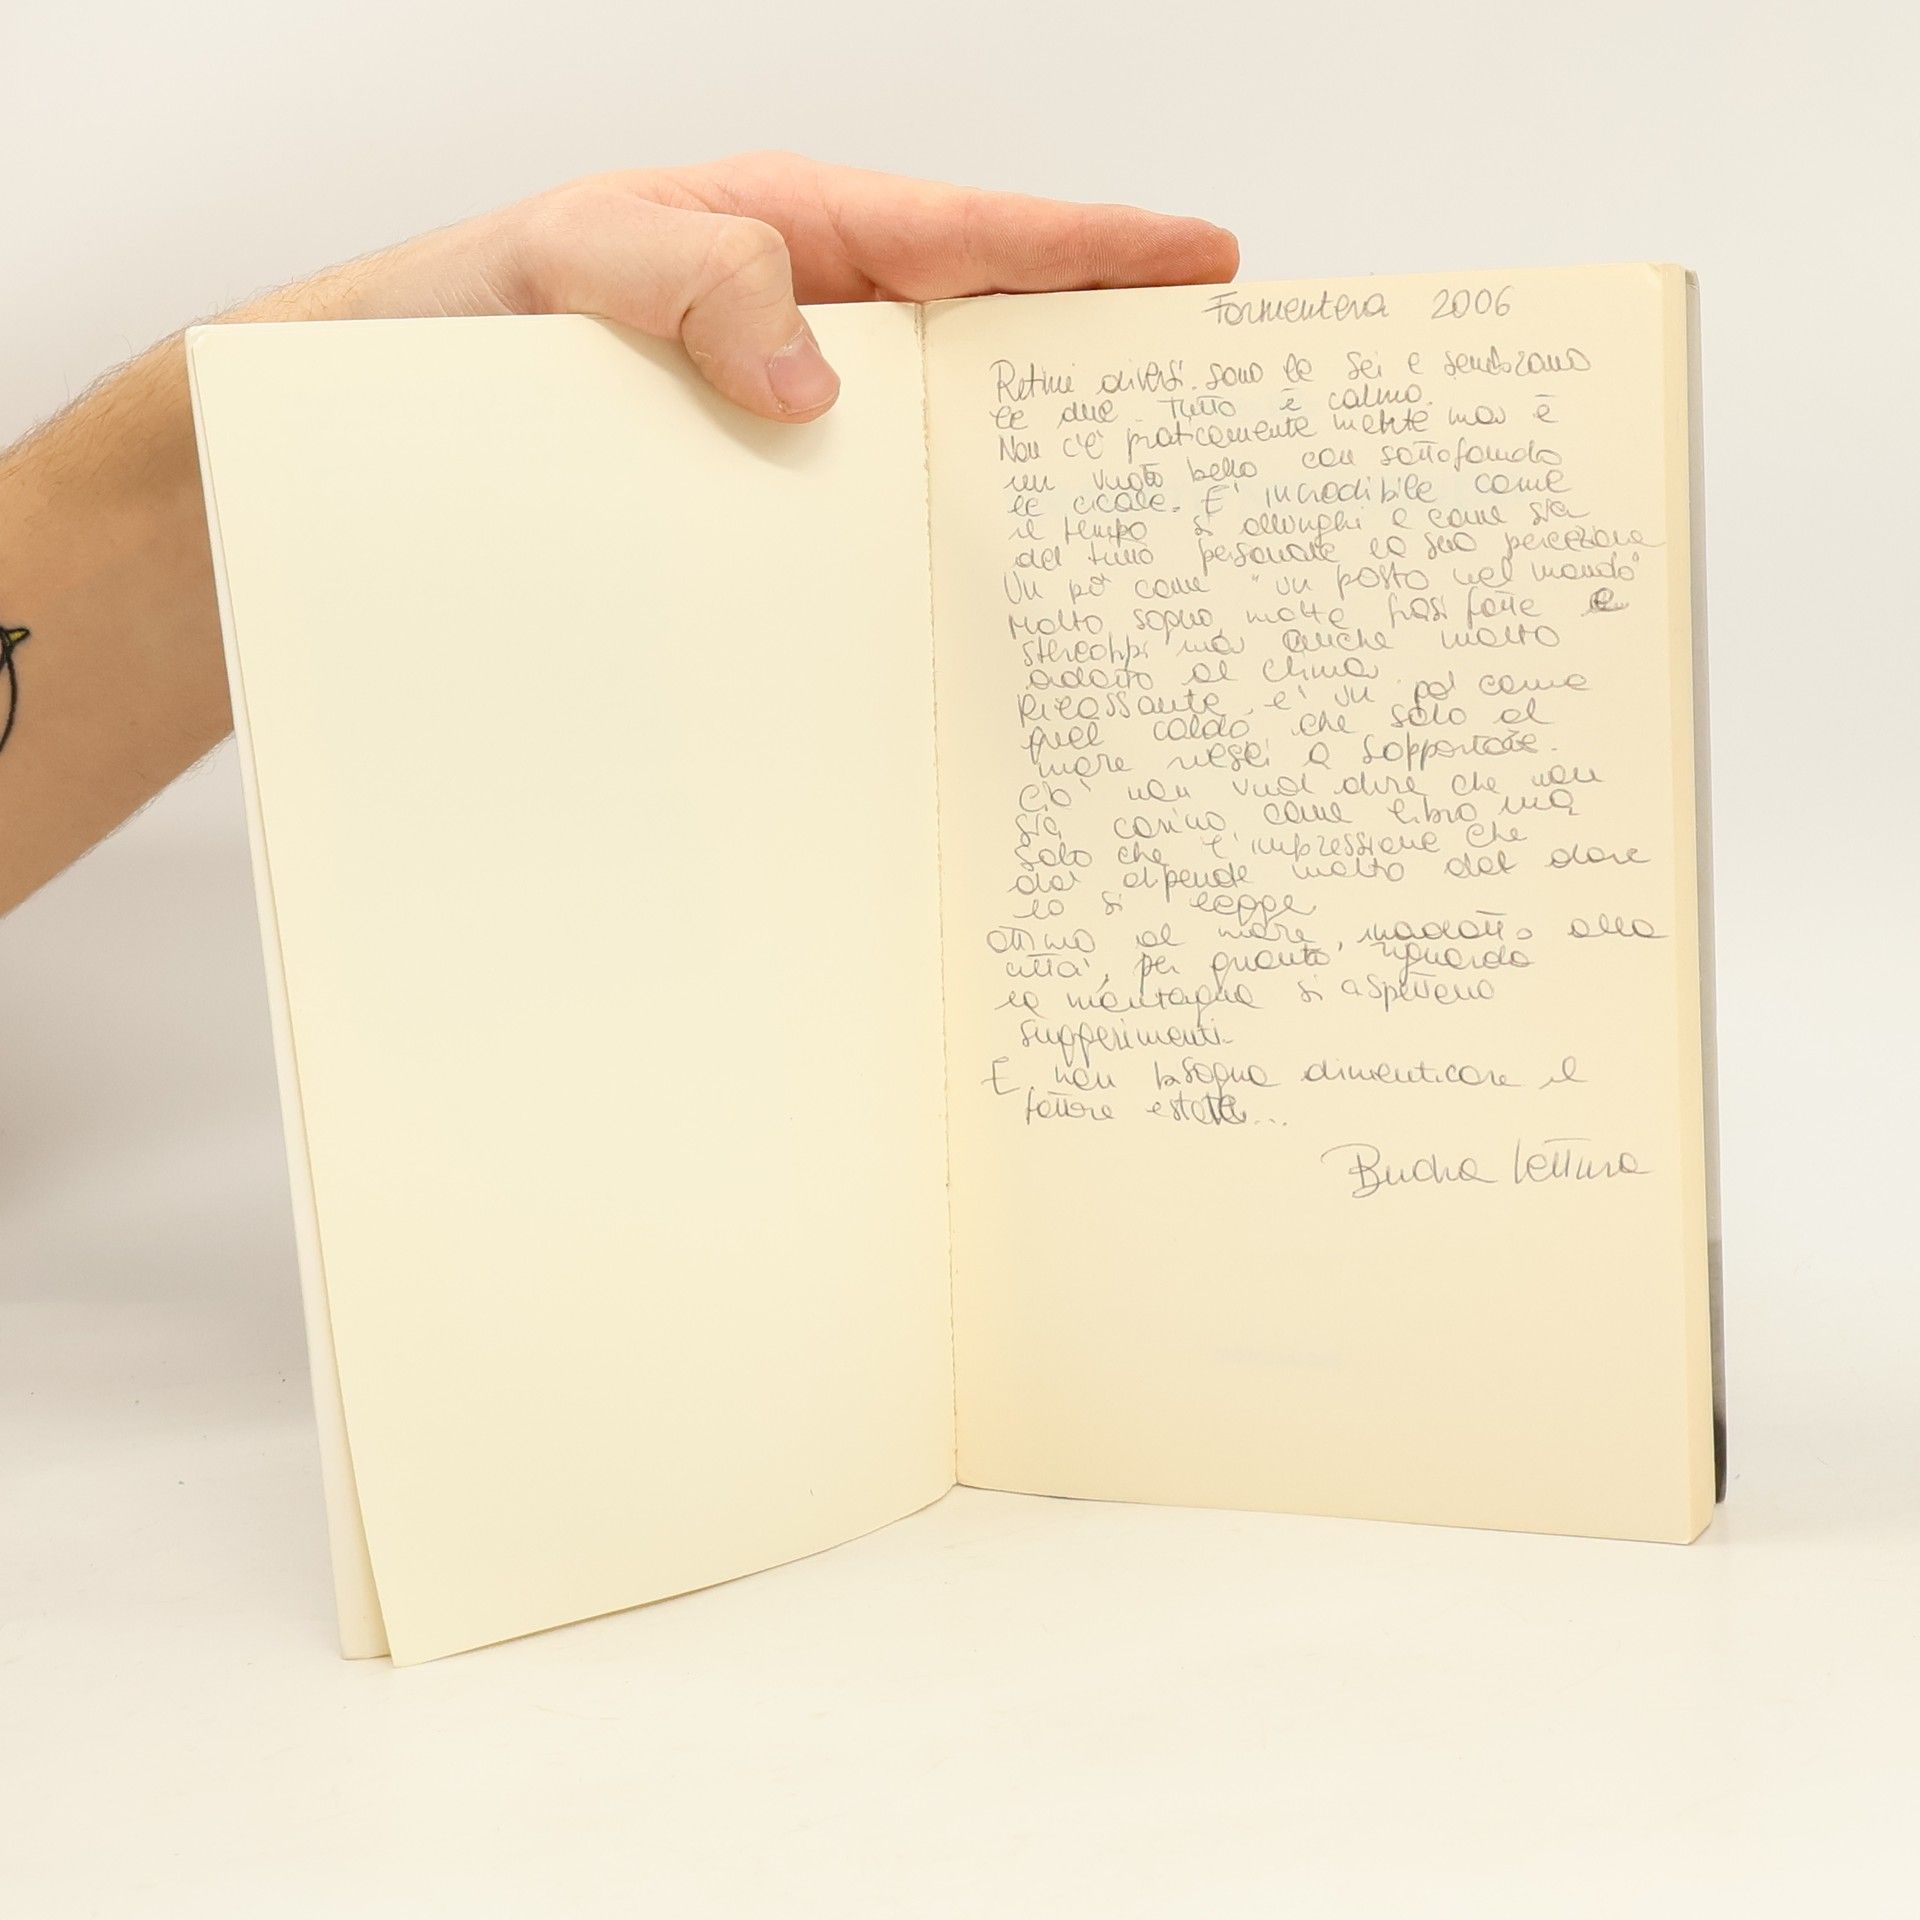 Formentera 2006
Ritmi diversi. sono le sei e sembrano
le due. Tutto è calmo.
Non c'è praticamente niente ma è
un vuoto bello con sottofondo
le cicale. E' incredibile come
il tempo si allunghi e come sia
del tutto personale la sua percezione
Un po' come "un posto nel mondo"
Molto sogno, molte frasi fatte e
stereotipi ma anche molto
adatto al clima.
Rilassante, e' un po' come
quel caldo che solo al
mare riesci a sopportare.
Ciò non vuol dire che non
sia carino, come libro ma
solo che l'impressione che
dai dipende molto dal dove
lo si legge
Ottimo al mare, inadatto alla
città, per quanto riguarda
la montagna si aspettano
suggerimenti.
E non bisogna dimenticare il
fattore estate...
Buona lettura